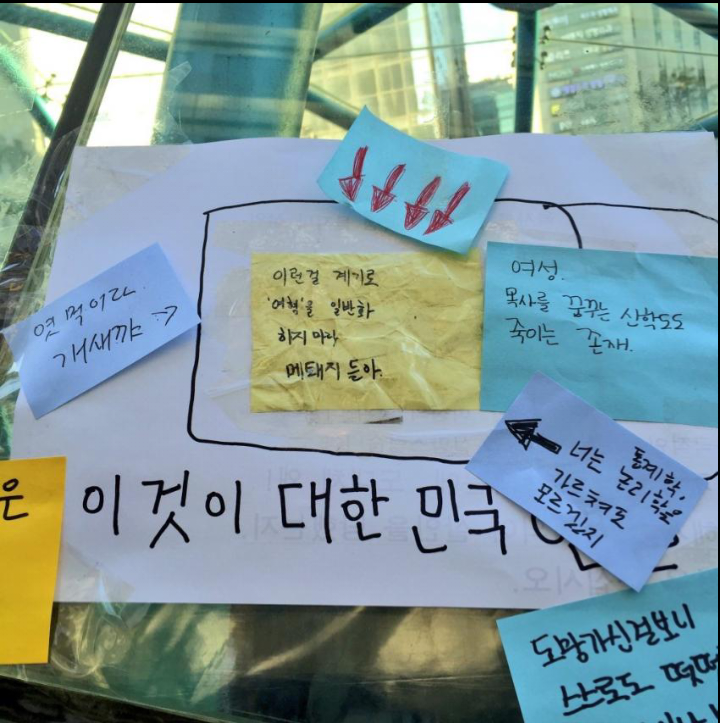 이런걸 계기로
'여혐'을 일반화
하지 마라
메퇘지 들아.
여성.
목사를 꿈꾸는 신학도도
죽이는 존재.
엿 먹이라.
개새끼야 →
너는 통계학,
논리학은
가르쳐도
모르겠지
은
이것이 대한민국
도망가신걸보니
스스로도 떳떳